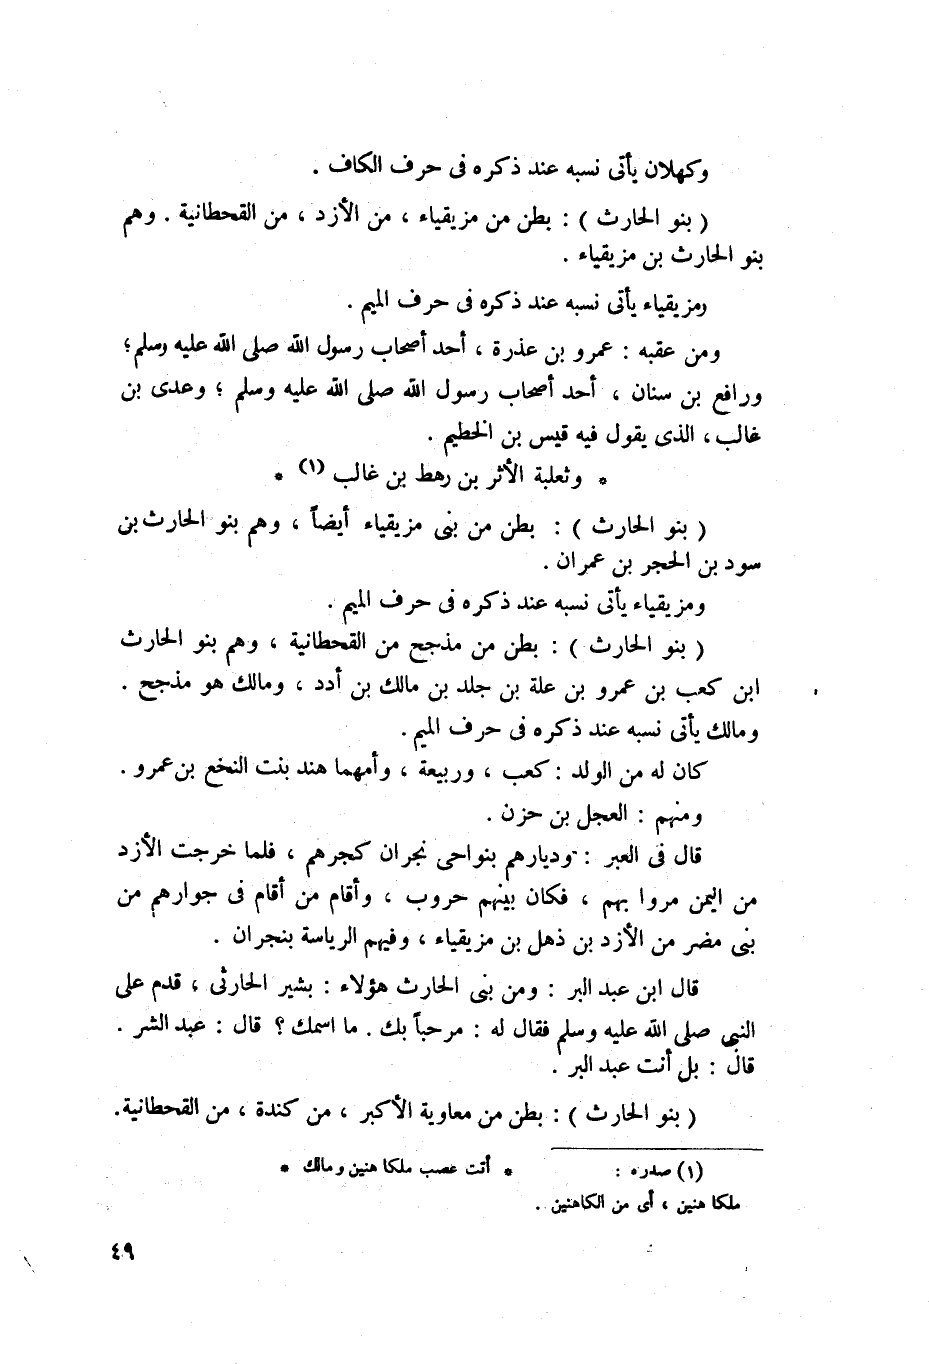 وكهلان يأتى نسبه عند ذكره فى حرف الكاف .
( بنو الحارث ) : بطن من مزيقياء ، من الأزد ، من القحطانية . وهم
بنو الحارث بن مزيقياء .
ومزيقياء يأتى نسبه عند ذكره فى حرف الميم .
ومن عقبه : عمرو بن عذرة ، أحد أصحاب رسول الله صلى الله عليه وسلم ؛
ورافع بن سنان ، أحد أصحاب رسول الله صلى الله عليه وسلم ؛ وعدى بن
غالب ، الذى يقول فيه قيس بن الخطيم .
* وثعلبة الأثر بن رهط بن غالب (١) *
( بنو الحارث ) : بطن من بنى مزيقياء أيضاً ، وهم بنو الحارث بن
سود بن الحجر بن عمران .
ومزيقياء يأتى نسبه عند ذكره فى حرف الميم .
( بنو الحارث ) : بطن من مذجح من القحطانية ، وهم بنو الحارث
ابن كعب بن عمرو بن علة بن جلد بن مالك بن أدد ، ومالك هو مذجح .
ومالك يأتى نسبه عند ذكره فى حرف الميم .
كان له من الولد : كعب ، وربيعة ، وأمهما هند بنت النخع بن عمرو .
ومنهم : العجل بن حزن .
قال فى العبر : وديارهم بنواحى نجران كجرهم ، فلما خرجت الأزد
من اليمن مروا بهم ، فكان بينهم حروب ، وأقام من أقام فى جوارهم من
بنى مضر من الأزد بن ذهل بن مزيقياء ، وفيهم الرياسة بنجران .
قال ابن عبد البر : ومن بنى الحارث هؤلاء : بشير الحارثى ، قدم على
النبي صلى الله عليه وسلم فقال له : مرحباً بك . ما اسمك ؟ قال : عبد الشر .
قال : بل أنت عبد البر .
( بنو الحارث ) : بطن من معاوية الأكبر ، من كندة ، من القحطانية .
(١) صدره : * أتت عصب ملكا هنين ومالك *
ملكا هنين ، أى من الكاهنين .
٤٩